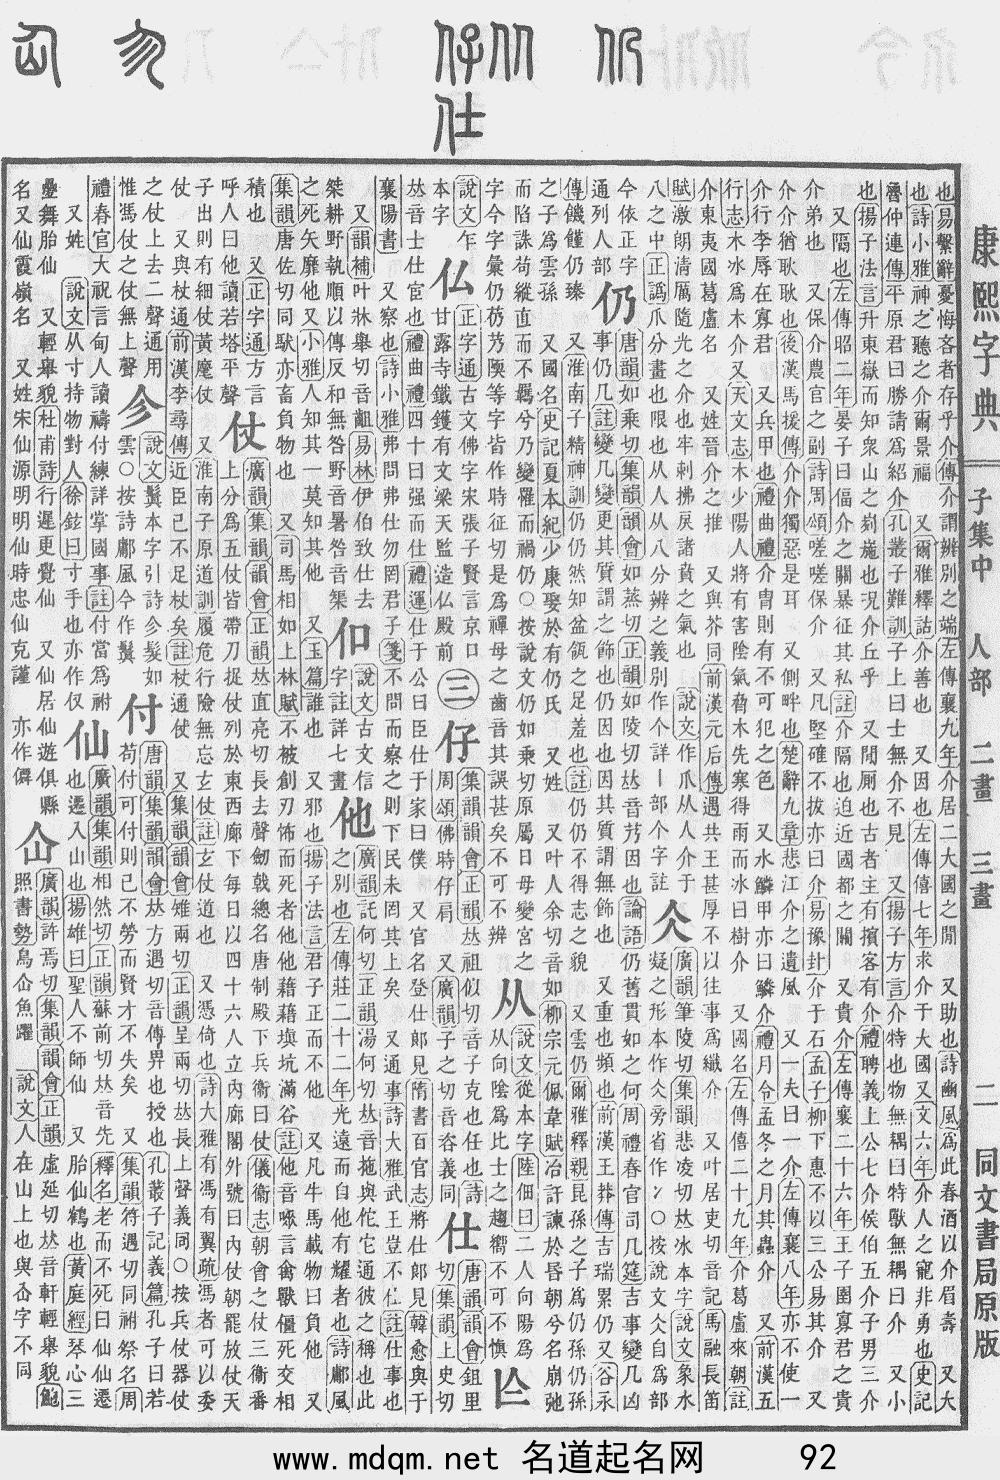 康熙字典 子集中 人部 二畫 三畫 二 同文書局原版
也易繫辭憂悔吝者存乎介傳介謂辨別之端左傳襄九年介居二大國之閒 又助也詩豳風爲此春酒以介眉壽 又大
也詩小雅神之聽之介爾景福 又爾雅釋詁介善也 又因也左傳僖七年求介于大國又文六年介人之寵非勇也史記
魯仲連傳平原君曰勝請爲紹介孔叢子難訓子上曰士無介不見 又揚子方言介特也物無耦曰特獸無耦曰介 又小
也揚子法言升東嶽而知衆山之峛崺也况介丘乎 又閒厠也古者主有擯客有介禮聘義上公七介侯伯五介子男三介
又隔也左傳昭二年晏子曰偪介之關暴征其私註介隔也迫近國都之關 又貴介左傳襄二十六年王子圍寡君之貴
介弟也 又保介農官之副詩周頌嗟嗟保介 又凡堅確不拔亦曰介易豫卦介于石孟子柳下惠不以三公易其介 又
介介猶耿耿也後漢馬援傳介介獨惡是耳 又側畔也楚辭九章悲江介之遺風 又一夫曰一介左傳襄八年亦不使一
介行李辱在寡君 又兵甲也禮曲禮介冑則有不可犯之色 又水鱗甲亦曰鱗介禮月令孟冬之月其蟲介 又前漢五
行志木冰爲木介又天文志木少陽人將有害陰氣脅木先寒得雨而冰曰樹介 又國名左傳僖二十九年介葛盧來朝註
介東夷國葛盧名 又姓晉介之推 又與芥同前漢元后傳遇共王甚厚不以往事爲纎介 又叶居吏切音記馬融長笛
賦激朗清厲隨光之介也牢剌拂戾諸賁之氣也 說文作爪从人介于
八之中正譌爪分畫也限也从人从八分辨之義別作个詳丨部个字註
仌 廣韻筆陵切集韻悲凌切𠀤冰本字說文象水
凝之形本作仌旁省作冫○按說文仌自爲部
今依正字
通列人部
仍 唐韻如乘切集韻韻會如蒸切正韻如陵切𠀤音芿因也論語仍舊貫如之何周禮春官司几筵吉事變几凶
事仍几註變几變更其質謂之飾也仍因也因其質謂無飾也 又重也頻也前漢王莽傳吉瑞累仍又谷永
傳饑饉仍臻 又淮南子精神訓仍仍然知盆瓴之足羞也註仍仍不得志之貌 又雲仍爾雅釋親昆孫之子爲仍孫仍孫
之子爲雲孫 又國名史記夏本紀少康娶於有仍氏 又姓 又叶人余切音如柳宗元佩韋賦冶訐諫於昏朝兮名崩弛
而陷誅苟縱直而不羈兮乃變罹而禍仍○按說文仍如乘切原屬日母變宮之
字今字彙仍芿艿陾等字皆作時征切是爲禪母之齒音其誤甚矣不可不辨
从 說文從本字陸佃曰二人向陽爲
从向陰爲比士之趨嚮不可不愼
亾
說文乍
本字
仏 正字通古文佛字宋張子賢言京口
甘露寺鐵鑊有文梁天監造仏殿前
三
仔 集韻韻會正韻𠀤祖似切音子克也任也詩
周頌佛時仔肩 又廣韻子之切音咨義同
仕 唐韻韻會鉏里
切集韻上史切
𠀤音士仕宦也禮曲禮四十曰强而仕禮運仕于公曰臣仕于家曰僕 又官名登仕郞見隋書百官志將仕郞見韓愈與于
襄陽書 又察也詩小雅弗問弗仕勿罔君子箋不問而察之則下民未罔其上矣 又通事詩大雅武王豈不仕註仕事也
又韻補叶牀舉切音齟易林伊伯致仕去
桀耕野執順以傳反和無咎野音暑咎音榘
㐰 說文古文信
字註詳七畫
他 廣韻託何切正韻湯何切𠀤音拖與佗它通彼之稱也此
之別也左傳莊二十二年光遠而自他有耀者也詩鄘風
之死矢靡他又小雅人知其一莫知其他 又玉篇誰也 又邪也揚子法言君子正而不他 又凡牛馬載物曰負他 又
集韻唐佐切同馱亦畜負物也 又司馬相如上林賦不被創刃怖而死者他他藉藉塡坑滿谷註他音㗾言禽獸僵死交相
積也 又正字通方言
呼人曰他讀若塔平聲
仗 廣韻集韻韻會正韻𠀤直亮切長去聲劒戟總名唐制殿下兵衞曰仗儀衞志朝會之仗三衞番
上分爲五仗皆帶刀捉仗列於東西廊下每日以四十六人立內廊閤外號曰內仗朝罷放仗天
子出則有細仗黃麾仗 又淮南子原道訓履危行險無忘玄仗註玄仗道也 又憑倚也詩大雅有馮有翼疏馮者可以委
仗 又與杖通前漢李尋傳近臣已不足杖矣註杖通仗 又集韻韻會雉兩切正韻呈兩切𠀤長上聲義同○按兵仗器仗
之仗上去二聲通用
惟馮仗之仗無上聲
㐱 說文鬒本字引詩㐱髮如
雲○按詩鄘風今作鬒
付 唐韻集韻韻會𠀤方遇切音傅畀也授也孔叢子記義篇孔子曰若
苟付可付則已不勞而賢才不失矣 又集韻符遇切同祔祭名周
禮春官大祝言甸人讀禱付練詳掌國事註付當爲祔
又姓 說文从寸持物對人徐鉉曰寸手也亦作仅
仙 廣韻集韻相然切正韻蘇前切𠀤音先釋名老而不死曰仙仙遷
也遷入山也揚雄曰聖人不師仙 又胎仙鶴也黃庭經琴心三
疊舞胎仙 又輕舉貌杜甫詩行遲更覺仙 又仙居仙遊俱縣
名又仙霞嶺名 又姓宋仙源明明仙時忠仙克謹 亦作僊
仚 廣韻許焉切集韻韻會正韻虛延切𠀤音軒輕舉貌鮑
照書勢鳥仚魚躍 說文人在山上也與仚字不同
www.mdqm.net 名道起名网 92